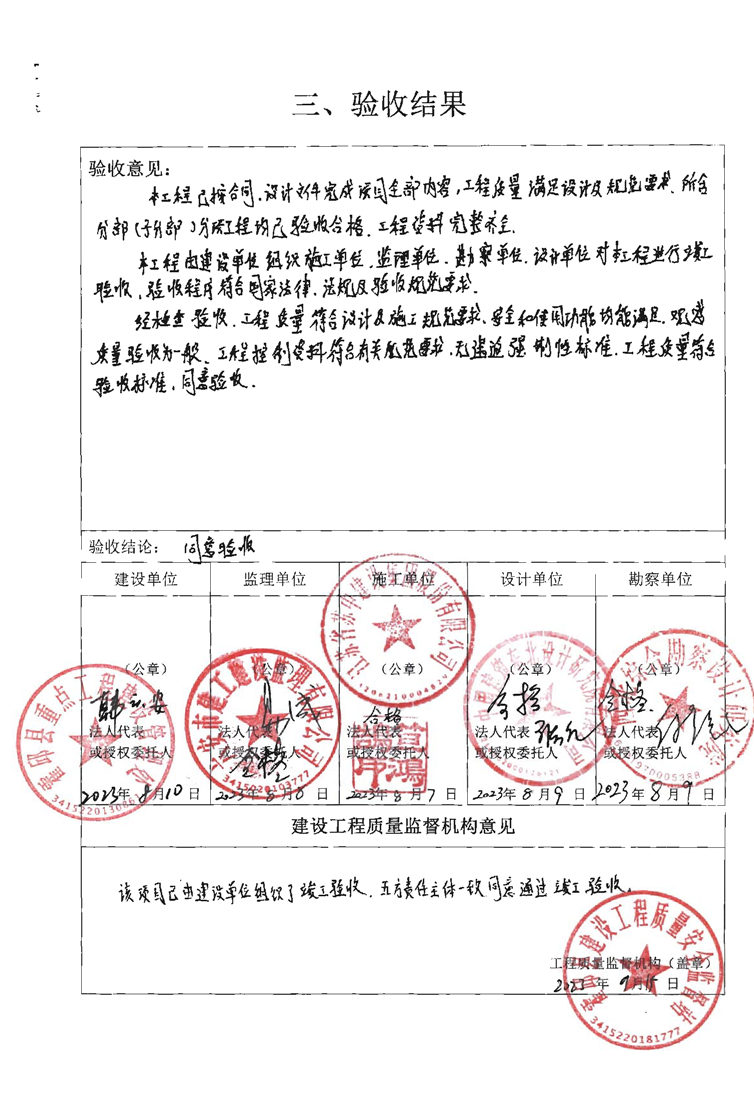 三、验收结果
验收意见:
本工程已按合同、设计文件完成该项目全部内容,工程质量满足设计及规范要求、所含
分部(子分部)分项工程均已验收合格、工程资料完整齐全.
本工程由建设单位组织施工单位、监理单位、勘察单位、设计单位对本工程进行竣工
验收、验收程序符合国家法律、法规及验收规范要求.
经检查验收、工程质量符合设计及施工规范要求、安全和使用功能均能满足、观感
质量验收为一般、工程控制资料符合有关规范要求、无违迫强制性标准、工程质量符合
验收标准、同意验收.
验收结论: 同意验收
建设单位 监理单位 施工单位 设计单位 勘察单位
江苏省苏中建设集团股份有限公司
(公章) (公章) (公章) (公章) (公章)
合格 合格 合格
法人代表 法人代表 法人代表 法人代表 法人代表
或授权委托人 或授权委托人 或授权委托人 或授权委托人 或授权委托人
合格
2023年8月10日 2023年8月8日 2023年8月7日 2023年8月9日 2023年8月9日
建设工程质量监督机构意见
该项目已由建设单位组织了竣工验收、五方责任主体一致同意通过竣工验收.
建设工程质量安全监督站
工程质量监督机构(盖章)
2023年9月15日
3415220181777